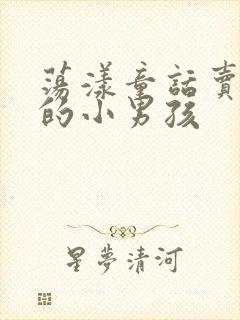 蕩漾童話賣
的小男孩
星夢清河